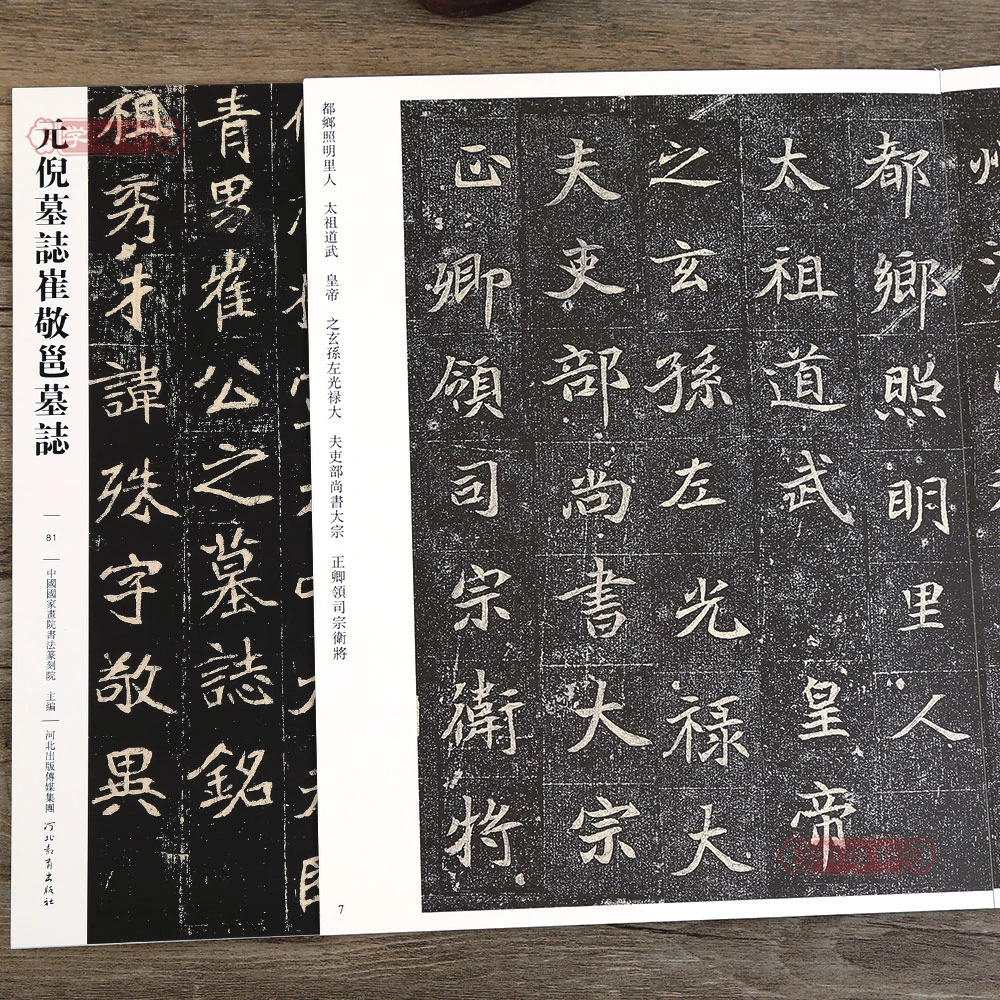 元倪墓誌崔敬邕墓誌
81
中國國家畫院書法篆刻院 主编
河北出版傳媒集團
河北教育出版社
青男崔公之墓誌銘
祖秀才諱殊字敬異
都鄉照明里人 太祖道武 皇帝 之玄孫左光禄大 夫吏部尚書大宗 正卿領司宗衛將
7
都鄉照明里人
太祖道武 皇帝
之玄孫左光禄大
夫吏部尚書大宗
正卿領司宗衛將